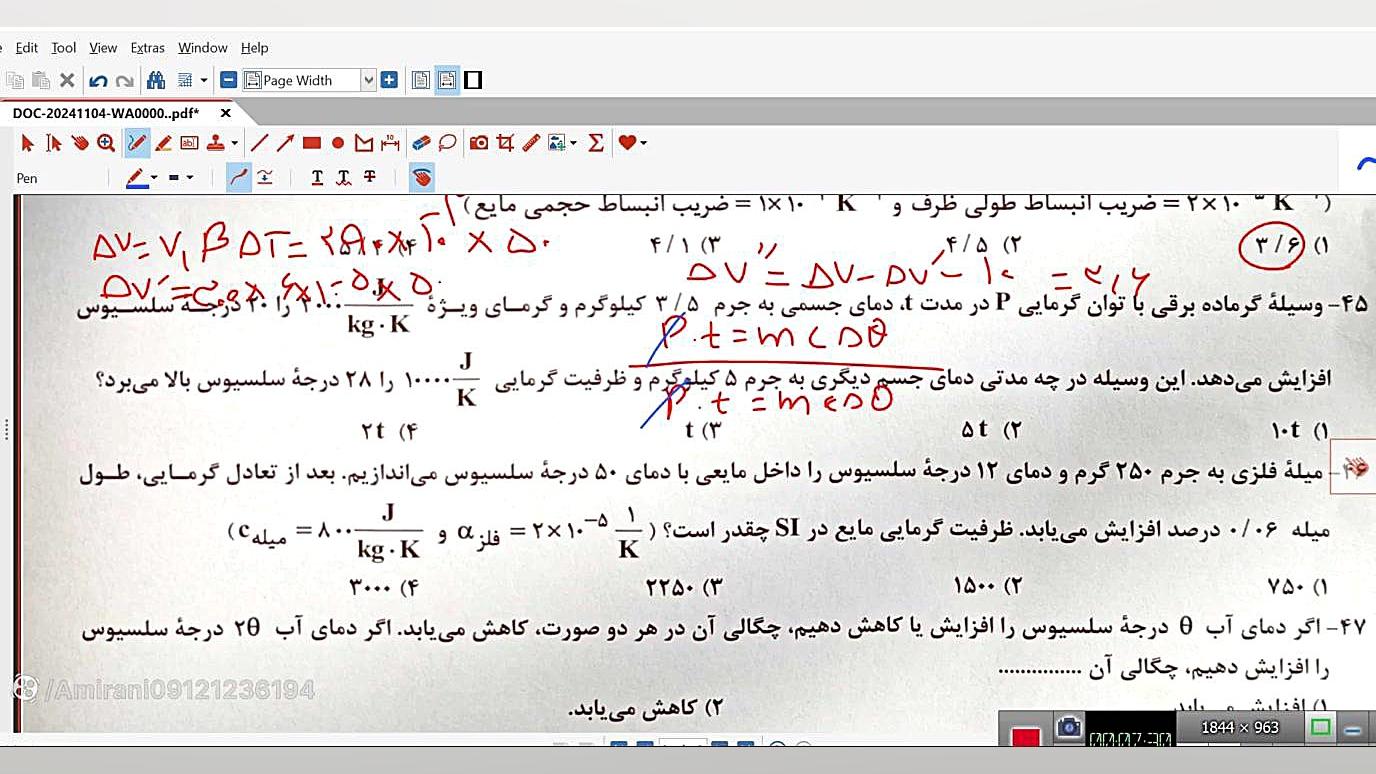 Edit Tool View Extras Window Help
Page Width
DOC-20241104-WA0000..pdf* x
Pen
ضریب انبساط حجمی مایع) = ۱×۱۰ K و ضریب انبساط طولی ظرف = ۲×۱۰ K )
۱) ۳/۶ ۲) ۴/۵ ۳) ۴/۱
ΔV = V₁ β ΔT =
ΔV″ = ΔV - ΔV′ - ۱۰ =
ΔV′ =
۴۵- وسیلهٔ گرماده برقی با توان گرمایی P در مدت t، دمای جسمی به جرم ۳/۵ کیلوگرم و گرمـای ویـژهٔ J/kg·K را ۴۰ درجـهٔ سلسـیوس
P.t = mcΔθ
افزایش می‌دهد. این وسیله در چه مدتی دمای جسم دیگری به جرم ۵ کیلوگرم و ظرفیت گرمایی ۱۰۰۰۰ J/K را ۲۸ درجهٔ سلسیوس بالا می‌برد؟
P.t = mcΔθ
۱) ۱۰t ۲) ۵t ۳) t ۴) ۲t
میلهٔ فلزی به جرم ۲۵۰ گرم و دمای ۱۲ درجهٔ سلسیوس را داخل مایعی با دمای ۵۰ درجهٔ سلسیوس می‌اندازیم. بعد از تعادل گرمـایی، طـول
میله ۰/۰۶ درصد افزایش می‌یابد. ظرفیت گرمایی مایع در SI چقدر است؟ ( α فلز = ۲×۱۰⁻⁵ ۱/K و c میله = ۸۰۰ J/kg·K )
۱) ۷۵۰ ۲) ۱۵۰۰ ۳) ۲۲۵۰ ۴) ۳۰۰۰
۴۷- اگر دمای آب θ درجهٔ سلسیوس را افزایش یا کاهش دهیم، چگالی آن در هر دو صورت، کاهش می‌یابد. اگر دمای آب ۲θ درجهٔ سلسیوس
را افزایش دهیم، چگالی آن ................
۲) کاهش می‌یابد.
/Amirani09121236194
1844 × 963